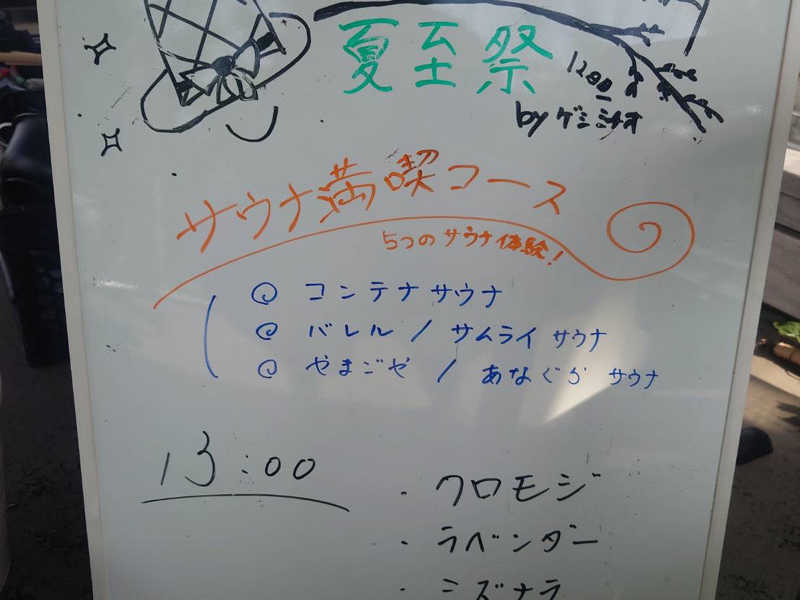 夏至祭
by ゲシミナオ
サウナ満喫コース
5つのサウナ体験!
@ コンテナサウナ
@ バレル / サムライ サウナ
@ やまごや / あなぐら サウナ
13:00
・クロモジ
・ラベンダー
・ミズナラ